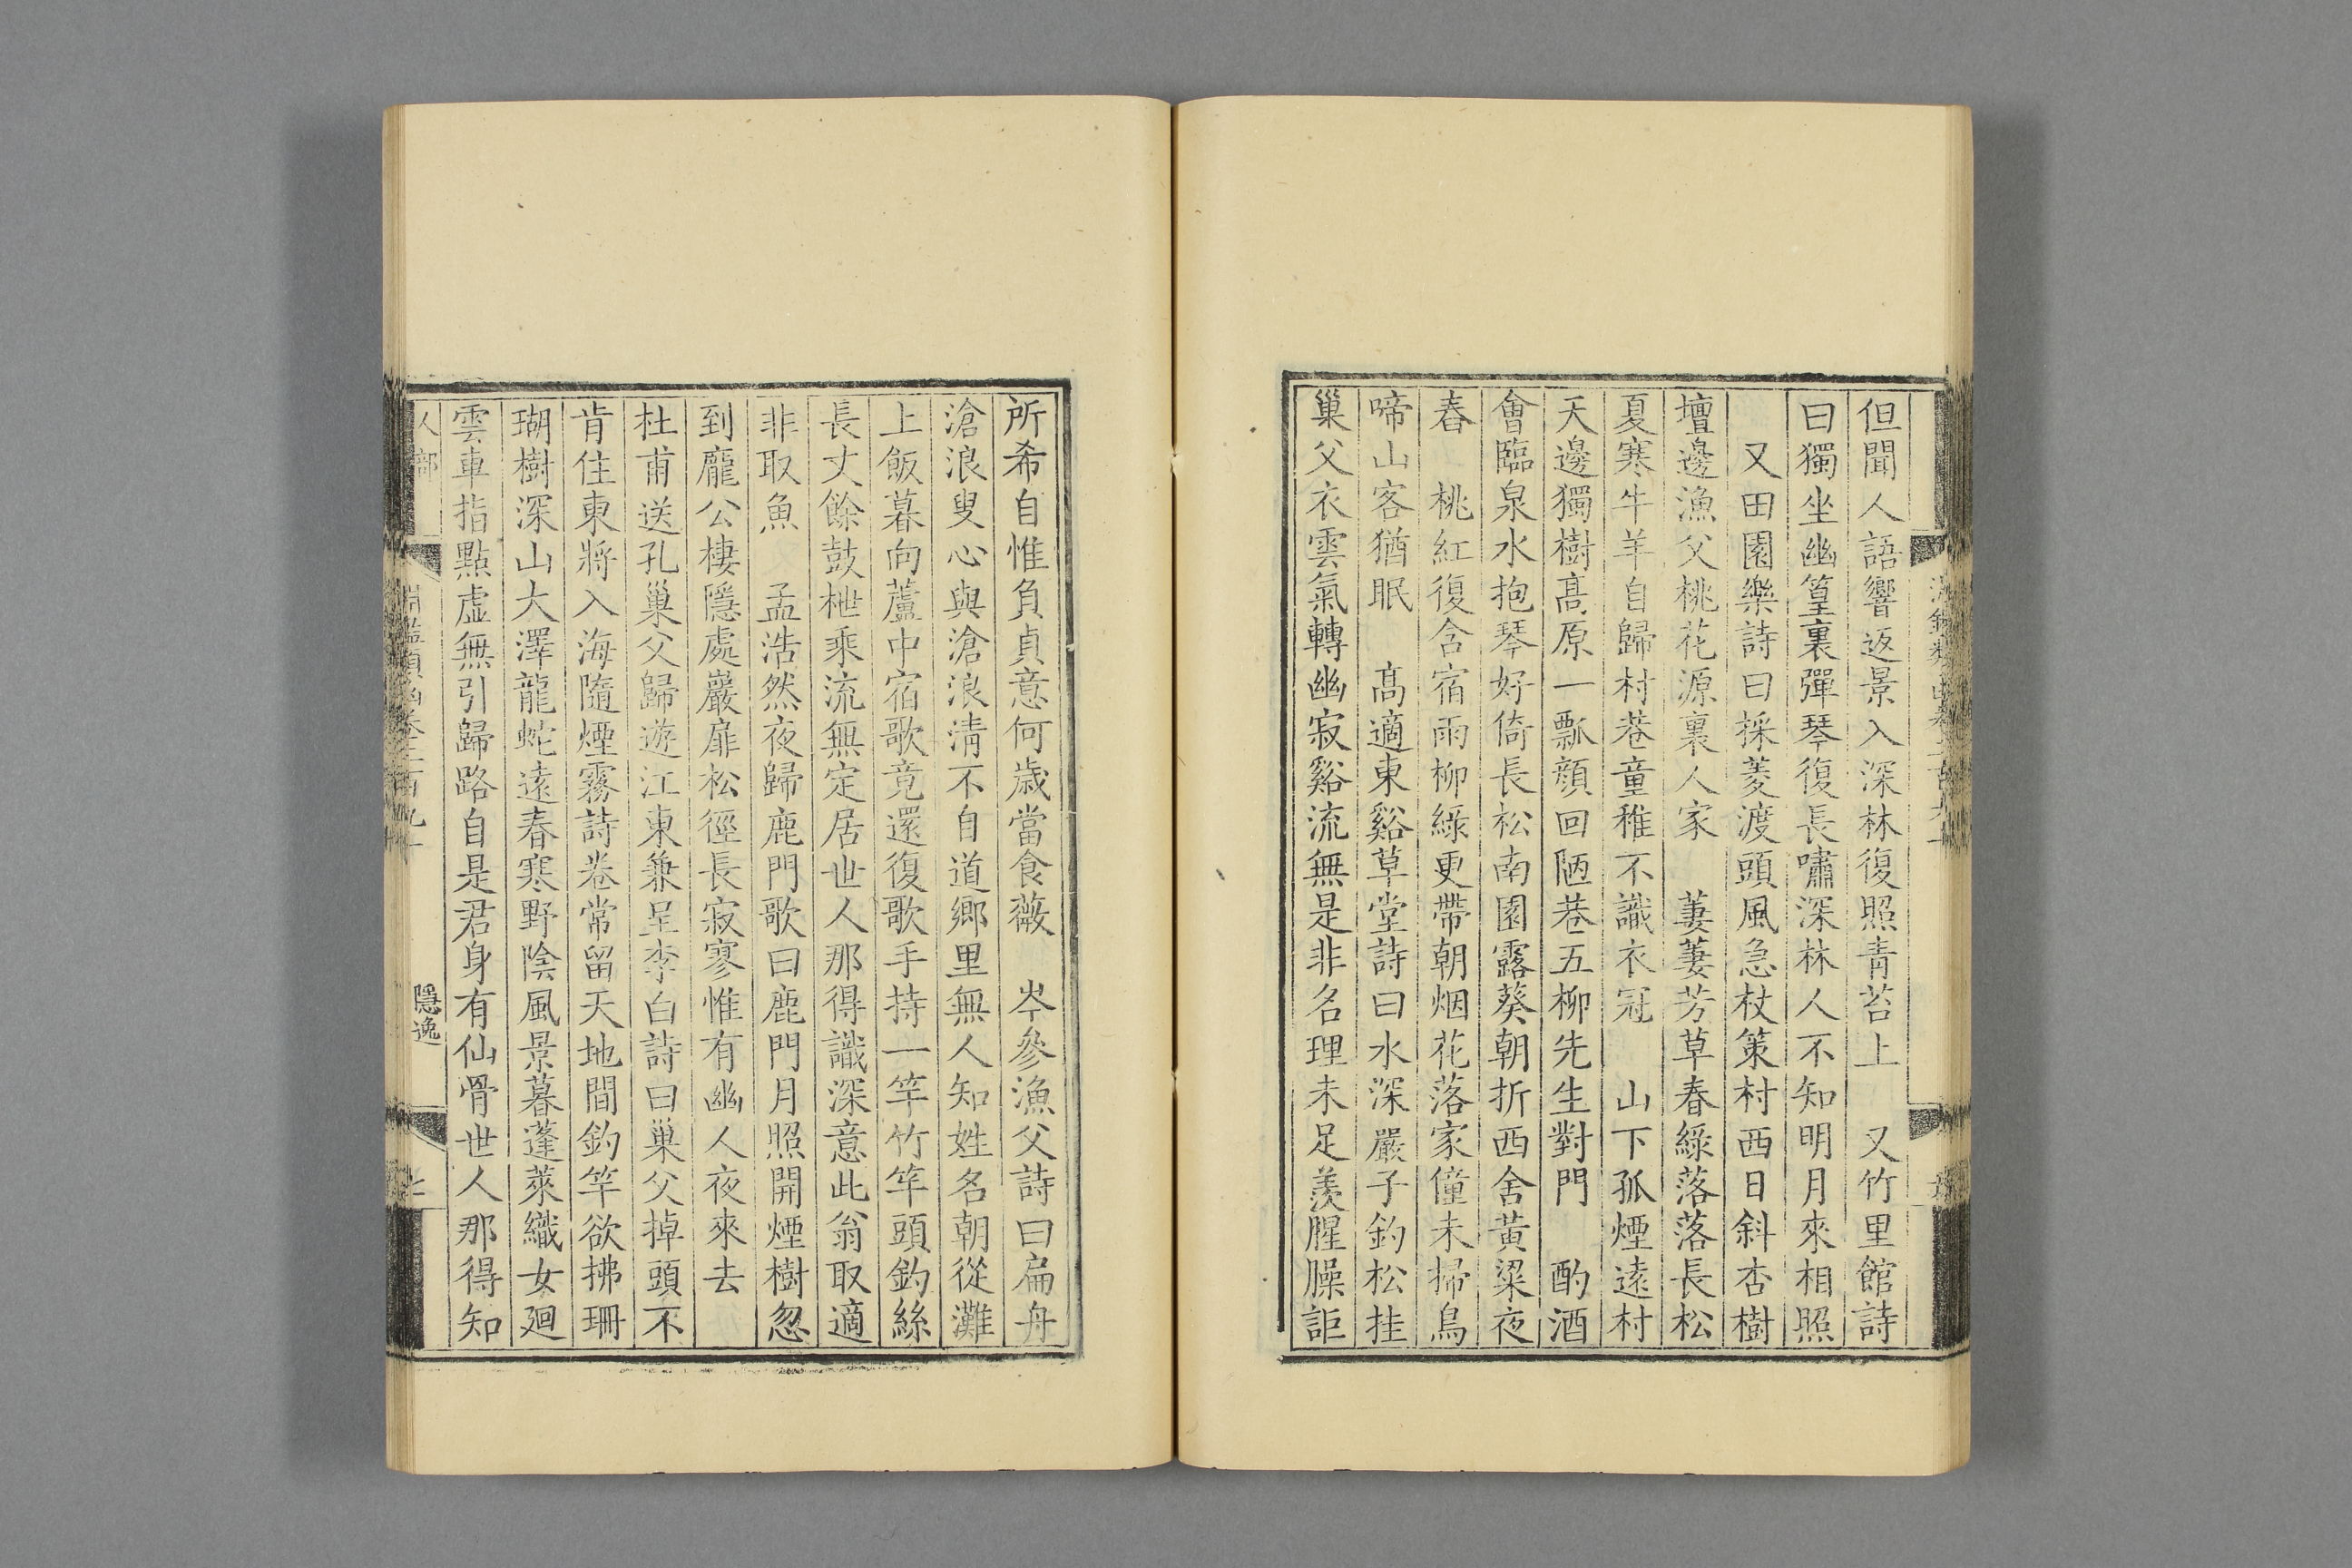 但聞人語響返景入深林復照青苔上　又竹里館詩
曰獨坐幽篁裏彈琴復長嘯深林人不知明月來相照
又田園樂詩曰採菱渡頭風急杖策村西日斜杏樹
壇邊漁父桃花源裏人家　萋萋芳草春綠落落長松
夏寒牛羊自歸村巷童稚不識衣冠　山下孤煙遠村
天邊獨樹髙原一瓢顔回陋巷五柳先生對門　酌酒
會臨泉水抱琴好倚長松南園露葵朝折西舍黃粱夜
舂　桃紅復含宿雨柳綠更帶朝烟花落家僮未掃鳥
啼山客猶眠　髙適東谿草堂詩曰水深嚴子釣松挂
巢父衣雲氣轉幽寂谿流無是非名理未足羨腥臊詎
所希自惟負貞意何歲當食薇　岑參漁父詩曰扁舟
滄浪叟心與滄浪清不自道鄉里無人知姓名朝從灘
上飯暮向蘆中宿歌竟還復歌手持一竿竹竿頭釣絲
長丈餘鼓枻乘流無定居世人那得識深意此翁取適
非取魚　孟浩然夜歸鹿門歌曰鹿門月照開煙樹忽
到龐公棲隱處巖扉松徑長寂寥惟有幽人夜來去
杜甫送孔巢父歸遊江東兼呈李白詩曰巢父掉頭不
肯住東將入海隨煙霧詩卷常留天地間釣竿欲拂珊
瑚樹深山大澤龍蛇遠春寒野陰風景暮蓬萊織女廻
雲車指點虛無引歸路自是君身有仙骨世人那得知
人部
淵鑑類函卷二百九十
隱逸